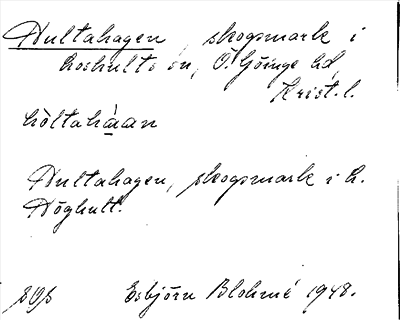 Hultahagen, skogsmark i
Loshults sn, Ö. Göinge hd,
Krist. l.
hòltahàan
Hultahagen, skogsmark i h.
Höghult.
Esbjörn Blohmé 1948.